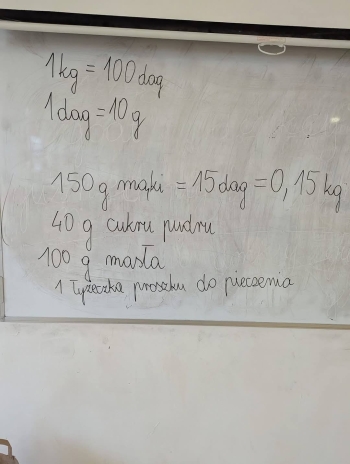 1kg = 100dag
1dag = 10g
150g mąki = 15dag = 0,15kg
40g cukru pudru
100g masła
1 łyżeczka proszku do pieczenia